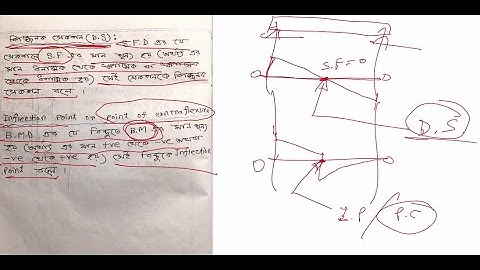 বিপজ্জনক সেকশন (D.S) : S.F.D এর যে
সেকশনে S.F এর মান শূন্য হয় (অর্থাৎ এর
মান ঋনাত্মক থেকে ধনাত্মক বা ধনাত্মক
থেকে ঋনাত্মক হয়) সেই সেকশনকে বিপজ্জনক
সেকশন বলে ।
Inflection Point or point of contraflexure
B.M.D এর যে বিন্দুতে B.M এর মান শূন্য
হয় (অর্থাৎ এর মান +ve থেকে -ve অথবা
-ve থেকে +ve হয়) সেই বিন্দুকে Inflection
Point বলে ।
S.F=0
0
0
D.S
0
0
I.P / P.C